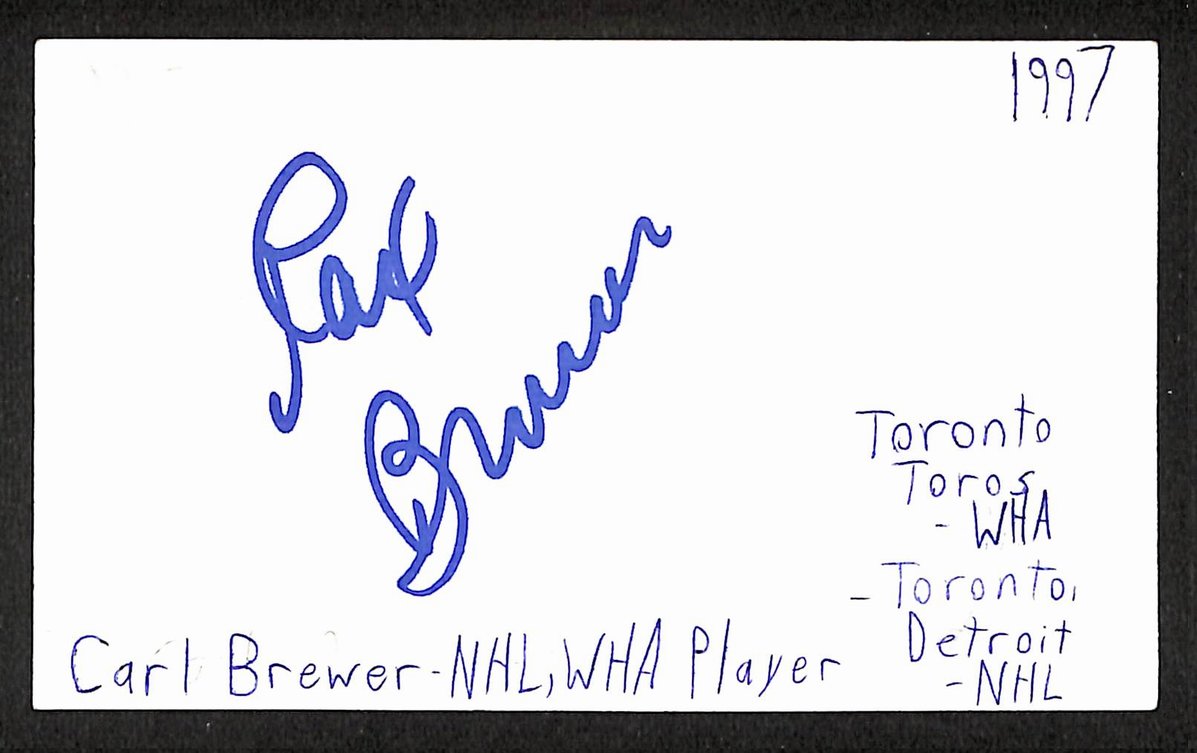 1997
Carl
Brewer
Toronto
Toros
- WHA
- Toronto,
Detroit
- NHL
Carl Brewer-NHL, WHA Player